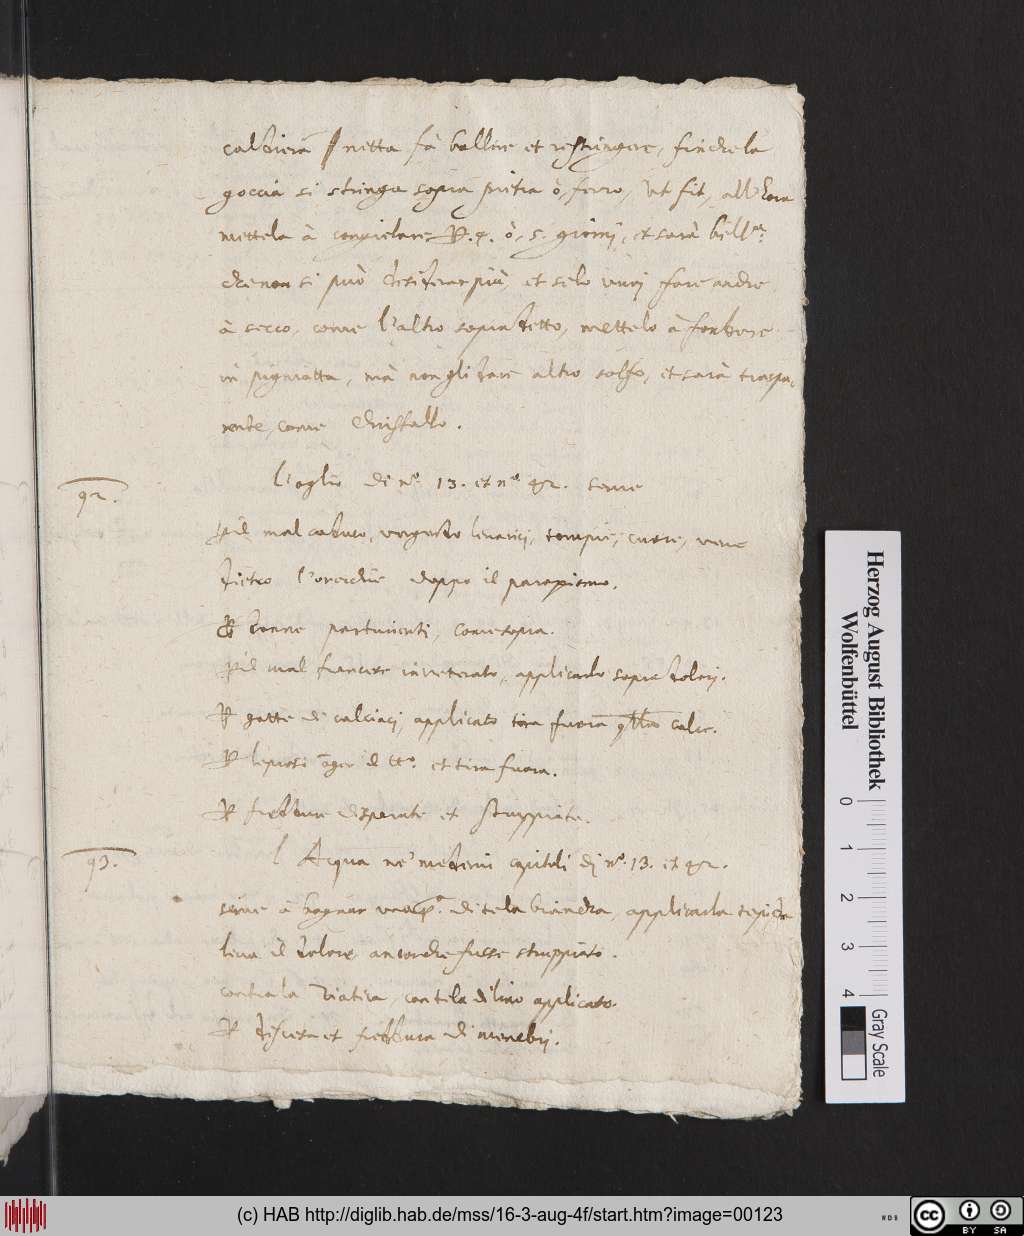 caldiera netta fà bollire et restringere, finche la
goccia si stringa sopra pietra ò, ferro, ut fit, all'hora
mettela à congielare P. 4. ò, 5. giorni, et sarà
che non si può desiderar più, et se lo vuoi fare anche
à secco, come l'altro sopradetto, mettelo à fondere
in pignatta, mà non gli dare altro solfo, et sarà traspa-
rente, come Christallo.
92.
L'oglio di nº. 13. et nº. 92. serve
P il mal caduco, le narici, tempie, cuore, vene
dietro l'orecchie doppo il paroxismo.
P donne parturienti, come sopra.
P il mal francese inveterato, applicarlo sopra dolori.
P gotte di calcinaci, applicato tira fuora calce.
P leprosi et tira fuora.
P freddure disperate et stroppiate.
93.
L'Acqua ne' medemi capitoli di nº. 13. et 92.
serve à bagnar di tela bianca, applicarla tepida
leva il dolore, ancorche fusse stroppiato.
contra la sciatica, con tela di lino applicato.
P discesa et freddura di membri.
Herzog August Bibliothek
Wolfenbüttel
0 1 2 3 4
Gray Scale
(c) HAB http://diglib.hab.de/mss/16-3-aug-4f/start.htm?image=00123
cc BY SA